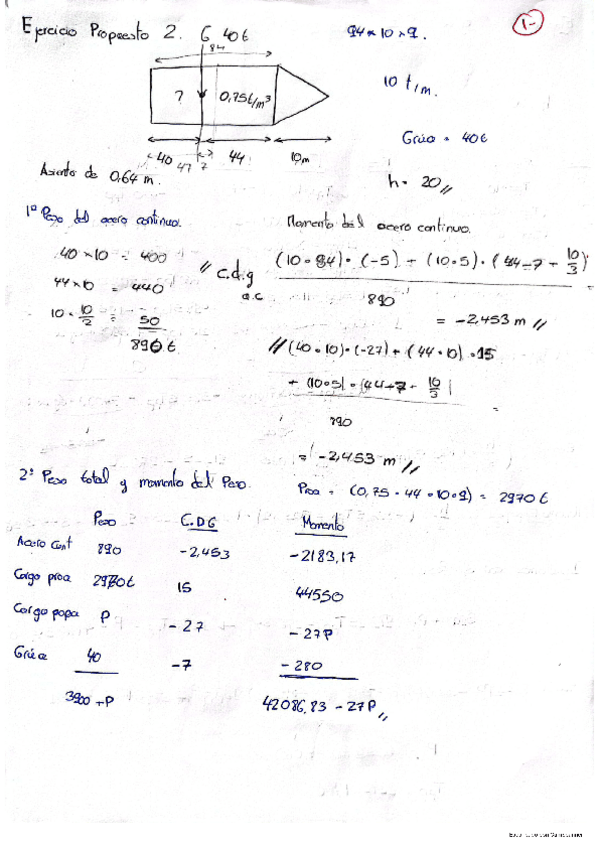 Ejercicio Propuesto 2. G 40t
94 x 10 x 9.
1-
84
10 t/m.
?
0,75t/m³
Grúa = 40t
40
47
7
44
10m
Asiento de 0,64 m.
h = 20 //
1º Peso del acero continuo.
Momento del acero continuo.
40 x 10 = 400
44 x 10 = 440
10 · 10/2 = 50
890 t
// c.d.g a.c
(10 · 84) · (-5) + (10 · 5) · (44 - 7 + 10/3)
890
= -2,453 m //
// (40 · 10) · (-27) + (44 · 10) · 15
+ (10 · 5) · (44 - 7 - 10/3)
890
= -2,453 m //
2º Peso total y momento del Peso.
Proa = (0,75 · 44 · 10 · 9) = 2970 t
Peso C.DG Momento
Acero Cont 890 -2,453 -2183,17
Cargo proa 2970t 15 44550
Cargo popa P -27 -27P
Grúa 40 -7 -280
3900 + P 42086,83 - 27P //